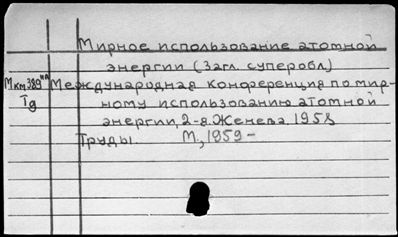 Мирное использование атомной
энергии (Загл. суперобл.)
Мкм389 нА Международная конференция по мир-
Тд ному использованию атомной
энергии, 2-я. Женева. 1958
Труды. М., 1959 –